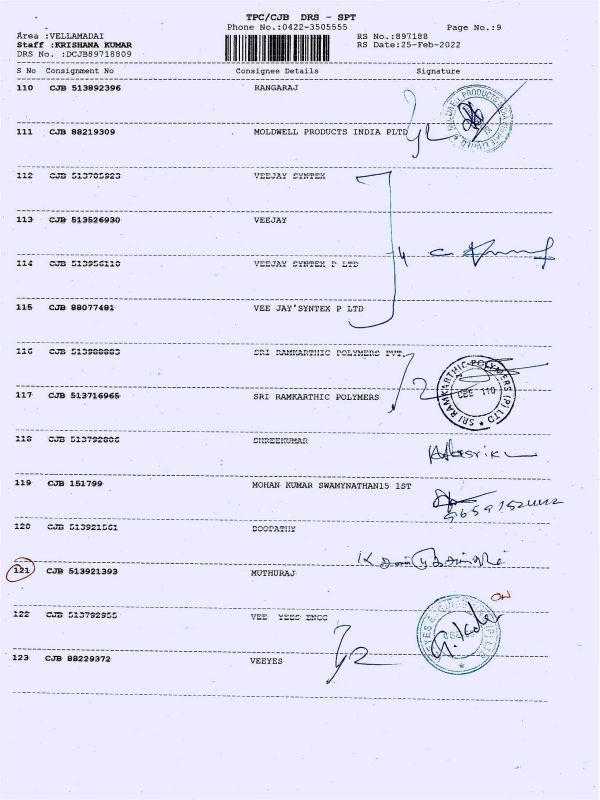 TPC/CJB DRS - SPT
Phone No.:0422-3505555 Page No.:9
Area :VELLAMADAI RS No.:897188
Staff :KRISHANA KUMAR RS Date:25-Feb-2022
DRS No. :DCJB89718809
S No Consignment No Consignee Details Signature
110 CJB 513892396 RANGARAJ
111 CJB 88219309 MOLDWELL PRODUCTS INDIA PLTD
112 CJB 513785923 VEEJAY SYNTEX
113 CJB 513526930 VEEJAY
114 CJB 513956110 VEEJAY SYNTEX P LTD
115 CJB 88077481 VEE JAY'SYNTEX P LTD
116 CJB 513988883 SRI RAMKARTHIC POLYMERS PVT.
117 CJB 513716965 SRI RAMKARTHIC POLYMERS
SRI RAMKARTHIC POLYMERS (P) LTD
CBE 110
118 CJB 513792886 SHREEKUMAR
119 CJB 151799 MOHAN KUMAR SWAMYNATHAN15 1ST
120 CJB 513921561 BOOPATHY
121 CJB 513921393 MUTHURAJ
ON
122 CJB 513792955 VEE YEES ENGG
123 CJB 88229372 VEEYES